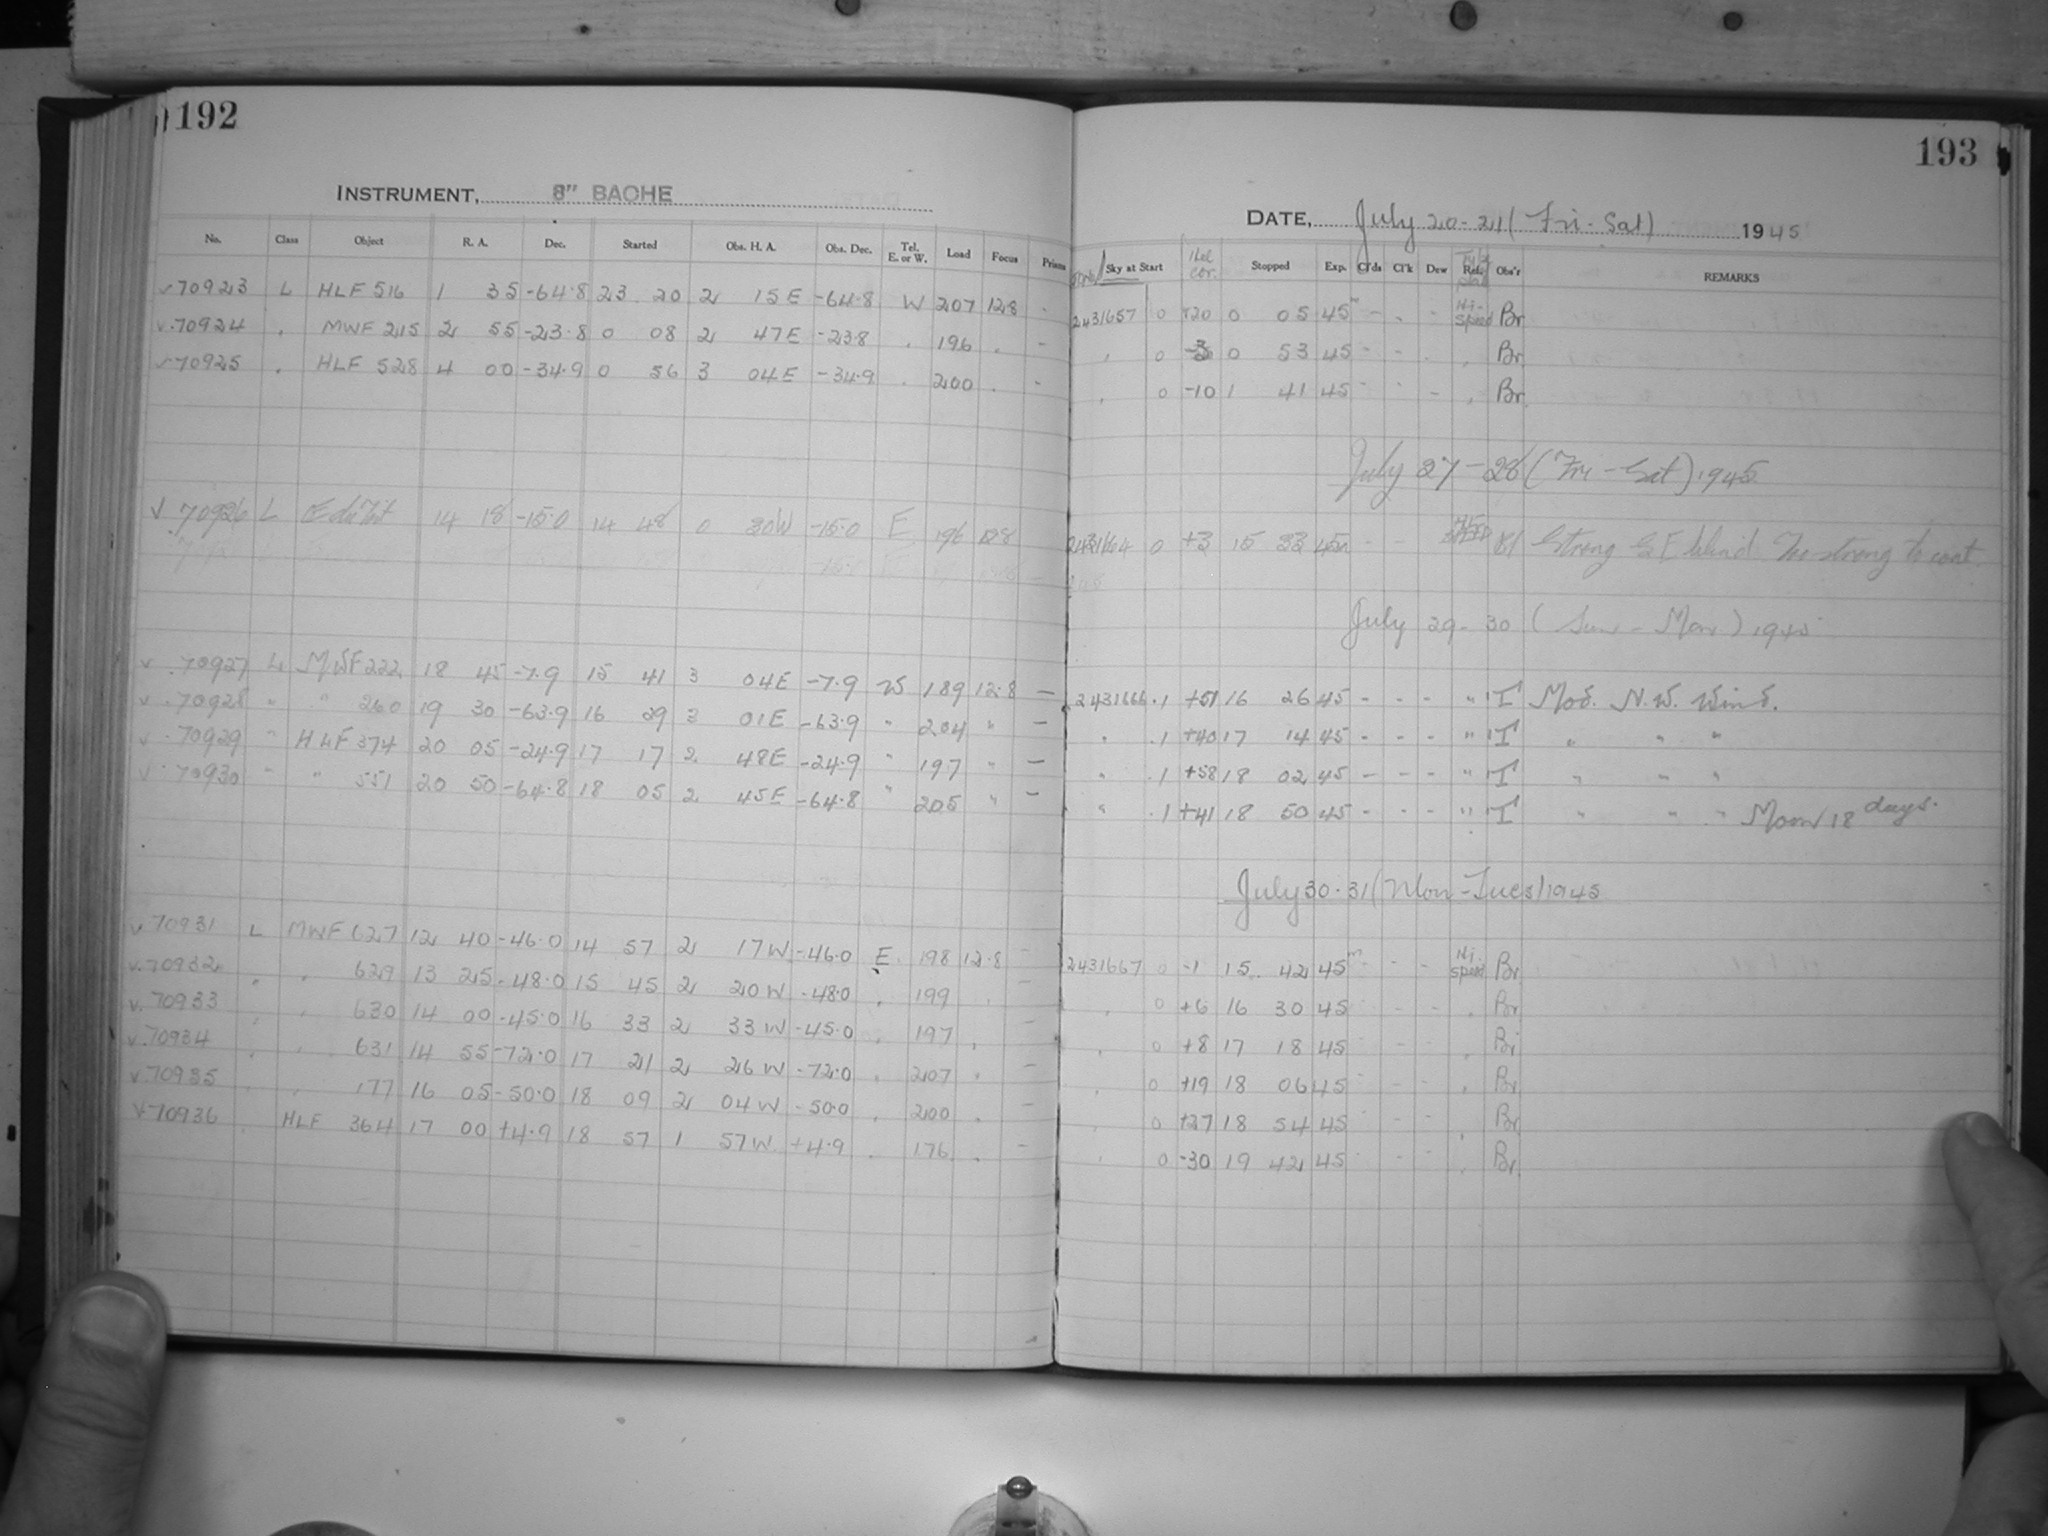 192
INSTRUMENT, 8" BACHE
No. Class Object R. A. Dec. Started Obs. H. A. Obs. Dec. Tel. E. or W. Load Focus Prisms
v 70923 L HLF 516 1 35 -64.8 23 20 2 15 E -64.8 W 207 12.8 -
v 70924 " MWF 215 2 55 -23.8 0 08 2 47 E -23.8 " 196 " -
v 70925 " HLF 528 4 00 -34.9 0 56 3 04 E -34.9 " 200 " -
v 70926 L 14 18 -15.0 14 48 0 30 W -15.0 E 196 12.8
v 70927 L MWF 222 18 45 -7.9 15 41 3 04 E -7.9 W 189 12.8 -
v 70928 " " 260 19 30 -63.9 16 29 3 01 E -63.9 " 204 " -
v 70929 " HLF 374 20 05 -24.9 17 17 2 48 E -24.9 " 197 " -
v 70930 " " 551 20 50 -64.8 18 05 2 45 E -64.8 " 205 " -
v 70931 L MWF 627 12 40 -46.0 14 57 2 17 W -46.0 E 198 12.8 -
v 70932 " " 629 13 25 -48.0 15 45 2 20 W -48.0 " 199 " -
v 70933 " " 630 14 00 -45.0 16 33 2 33 W -45.0 " 197 " -
v 70934 " " 631 14 55 -72.0 17 21 2 26 W -72.0 " 207 " -
v 70935 " " 177 16 05 -50.0 18 09 2 04 W -50.0 " 200 " -
v 70936 " HLF 364 17 00 +4.9 18 57 1 57 W +4.9 " 176 " -
193
DATE, July 20-21 (Fri-Sat) 1945
Sky at Start Stopped Exp. Cl'ds Cl'k Dew Ref. Obs'r REMARKS
2431657 0 +20 0 05 45m - - - Hi-speed Br
" 0 -3 0 53 45 - - - " Br
" 0 -10 1 41 45 - - - " Br
July 27-28 (Fri-Sat) 1945
2431664 0 +3 15 33 45m - - Strong S E Wind. Too strong to cont.
July 29-30 (Sun-Mon) 1945
2431666 .1 +51 16 26 45 - - - " T Mod. N.W. Wind.
" .1 +40 17 14 45 - - - " T " " "
" .1 +58 18 02 45 - - - " T " " "
" .1 +41 18 50 45 - - - " T " " " Moon 18 days.
July 30-31 (Mon-Tues) 1945
2431667 0 -1 15 42 45m - - - Hi-speed Br
" 0 +6 16 30 45 - - - " Br
" 0 +8 17 18 45 - - - " Br
" 0 +19 18 06 45 - - - " Br
" 0 +27 18 54 45 - - - " Br
" 0 -30 19 42 45 - - - " Br